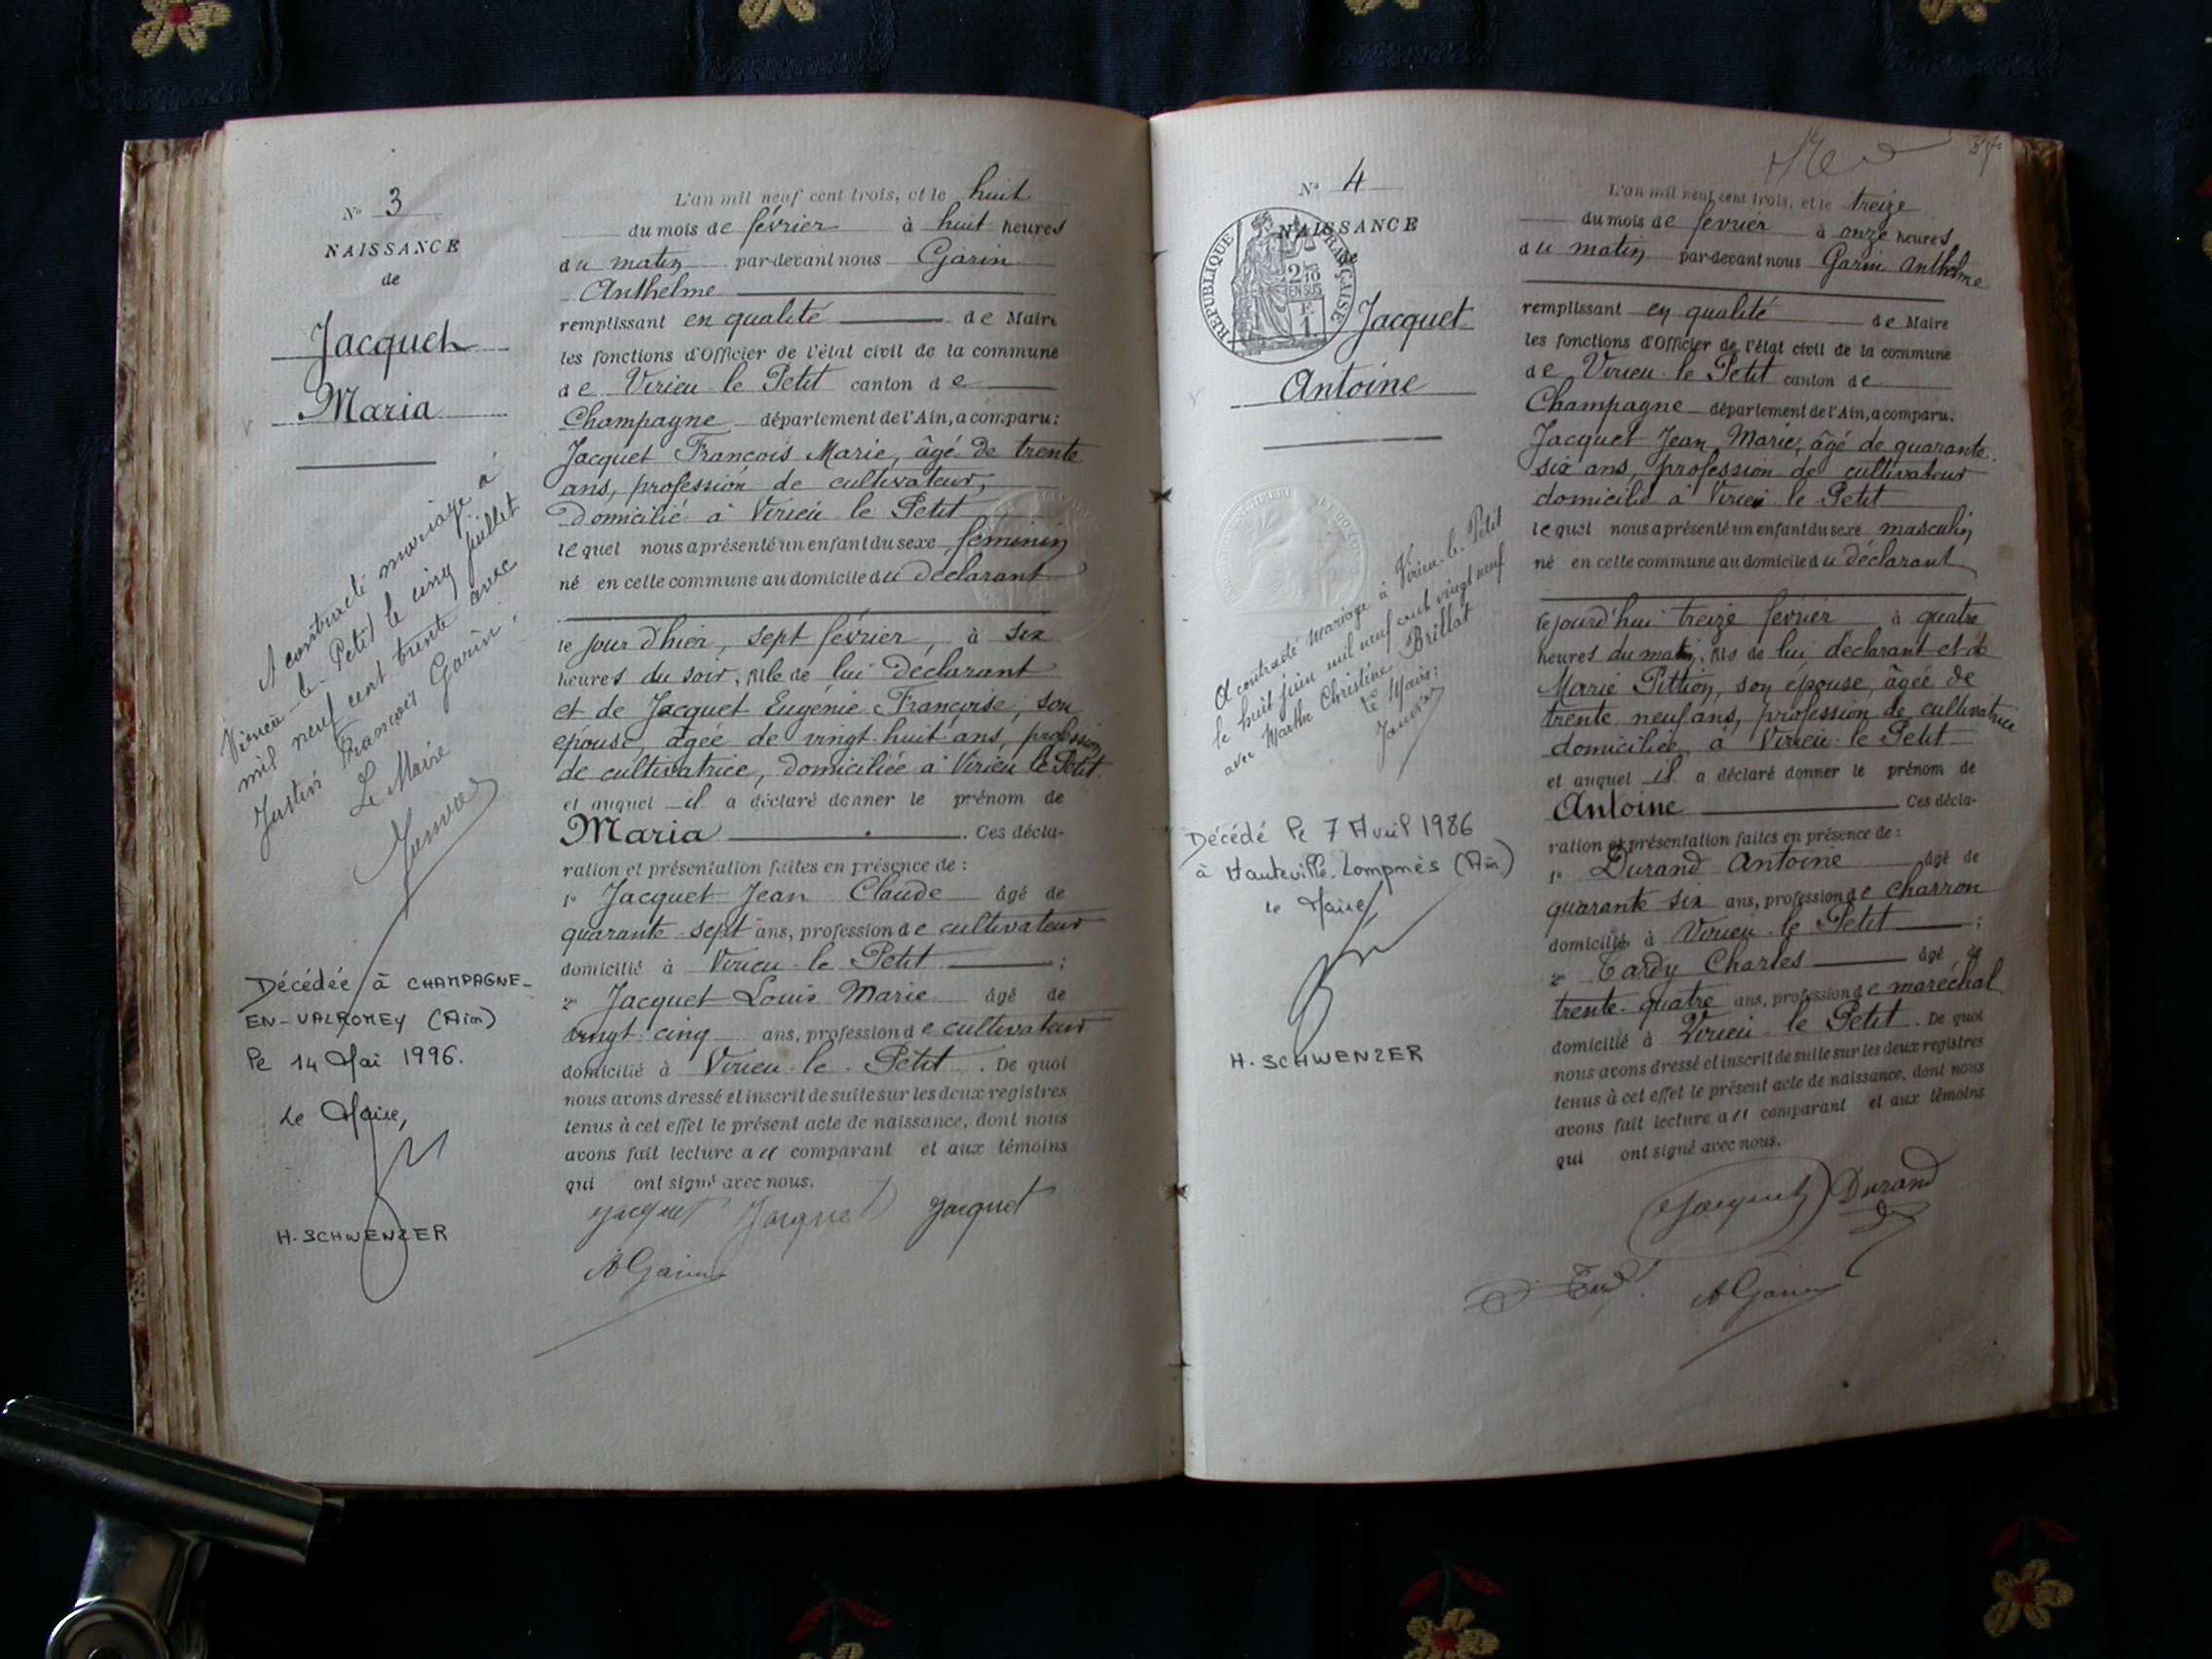 N° 3
NAISSANCE
de
Jacquet
Maria
A contracté mariage à
Virieu-le-Petit le cinq juillet
mil neuf cent trente avec
Justin François Garin.
Le Maire
Décédée à CHAMPAGNE-
EN-VALROMEY (Ain)
le 14 Mai 1996.
Le Maire,
H. SCHWENZER
L'an mil neuf cent trois, et le huit
du mois de février à huit heures
du matin par-devant nous Garin
Anthelme
remplissant en qualité de Maire
les fonctions d'Officier de l'état civil de la commune
de Virieu-le-Petit canton de
Champagne département de l'Ain, a comparu:
Jacquet François Marie, âgé de trente
ans, profession de cultivateur,
domicilié à Virieu le Petit
lequel nous a présenté un enfant du sexe féminin
né en cette commune au domicile du déclarant
le jour d'hier, sept février, à six
heures du soir, fille de lui déclarant
et de Jacquet Eugénie Françoise, son
épouse, âgée de vingt-huit ans, profession
de cultivatrice, domiciliée à Virieu le Petit.
et auquel il a déclaré donner le prénom de
Maria . Ces décla-
ration et présentation faites en présence de :
1° Jacquet Jean Claude âgé de
quarante-sept ans, profession de cultivateur
domicilié à Virieu-le Petit ;
2° Jacquet Louis Marie âgé de
vingt-cinq ans, profession de cultivateur
domicilié à Virieu-le-Petit . De quoi
nous avons dressé et inscrit de suite sur les deux registres
tenus à cet effet le présent acte de naissance, dont nous
avons fait lecture au comparant et aux témoins
qui ont signé avec nous.
Jacquet Jacquet Jacquet
A Garin
N° 4
NAISSANCE
de
RÉPUBLIQUE FRANÇAISE
2/10
EN SUS
F.
1.
Jacquet
Antoine
A contracté mariage à Virieu-le-Petit
le huit juin mil neuf cent vingt neuf
avec Marthe Christine Brillat
Le Maire:
Décédé le 7 Avril 1986
à Hauteville-Lompnès (Ain)
le Maire
H. SCHWENZER
L'an mil neuf cent trois, et le treize
du mois de février à onze heures
du matin par-devant nous Garin Anthelme
remplissant en qualité de Maire
les fonctions d'Officier de l'état civil de la commune
de Virieu-le Petit canton de
Champagne département de l'Ain, a comparu:
Jacquet Jean Marie, âgé de quarante-
six ans, profession de cultivateur
domicilié à Virieu le Petit
lequel nous a présenté un enfant du sexe masculin
né en cette commune au domicile du déclarant
le jourd'hui treize février à quatre
heures du matin, fils de lui déclarant et de
Marie Pittion, son épouse, âgée de
trente neuf ans, profession de cultivatrice
domiciliée à Virieu-le Petit
et auquel il a déclaré donner le prénom de
Antoine Ces décla-
ration et présentation faites en présence de :
1° Durand Antoine âgé de
quarante six ans, profession de charron
domicilié à Virieu-le Petit ;
2° Tardy Charles âgé de
trente-quatre ans, profession de maréchal
domicilié à Virieu-le Petit . De quoi
nous avons dressé et inscrit de suite sur les deux registres
tenus à cet effet le présent acte de naissance, dont nous
avons fait lecture au comparant et aux témoins
qui ont signé avec nous.
Jacquet Durand
A Garin